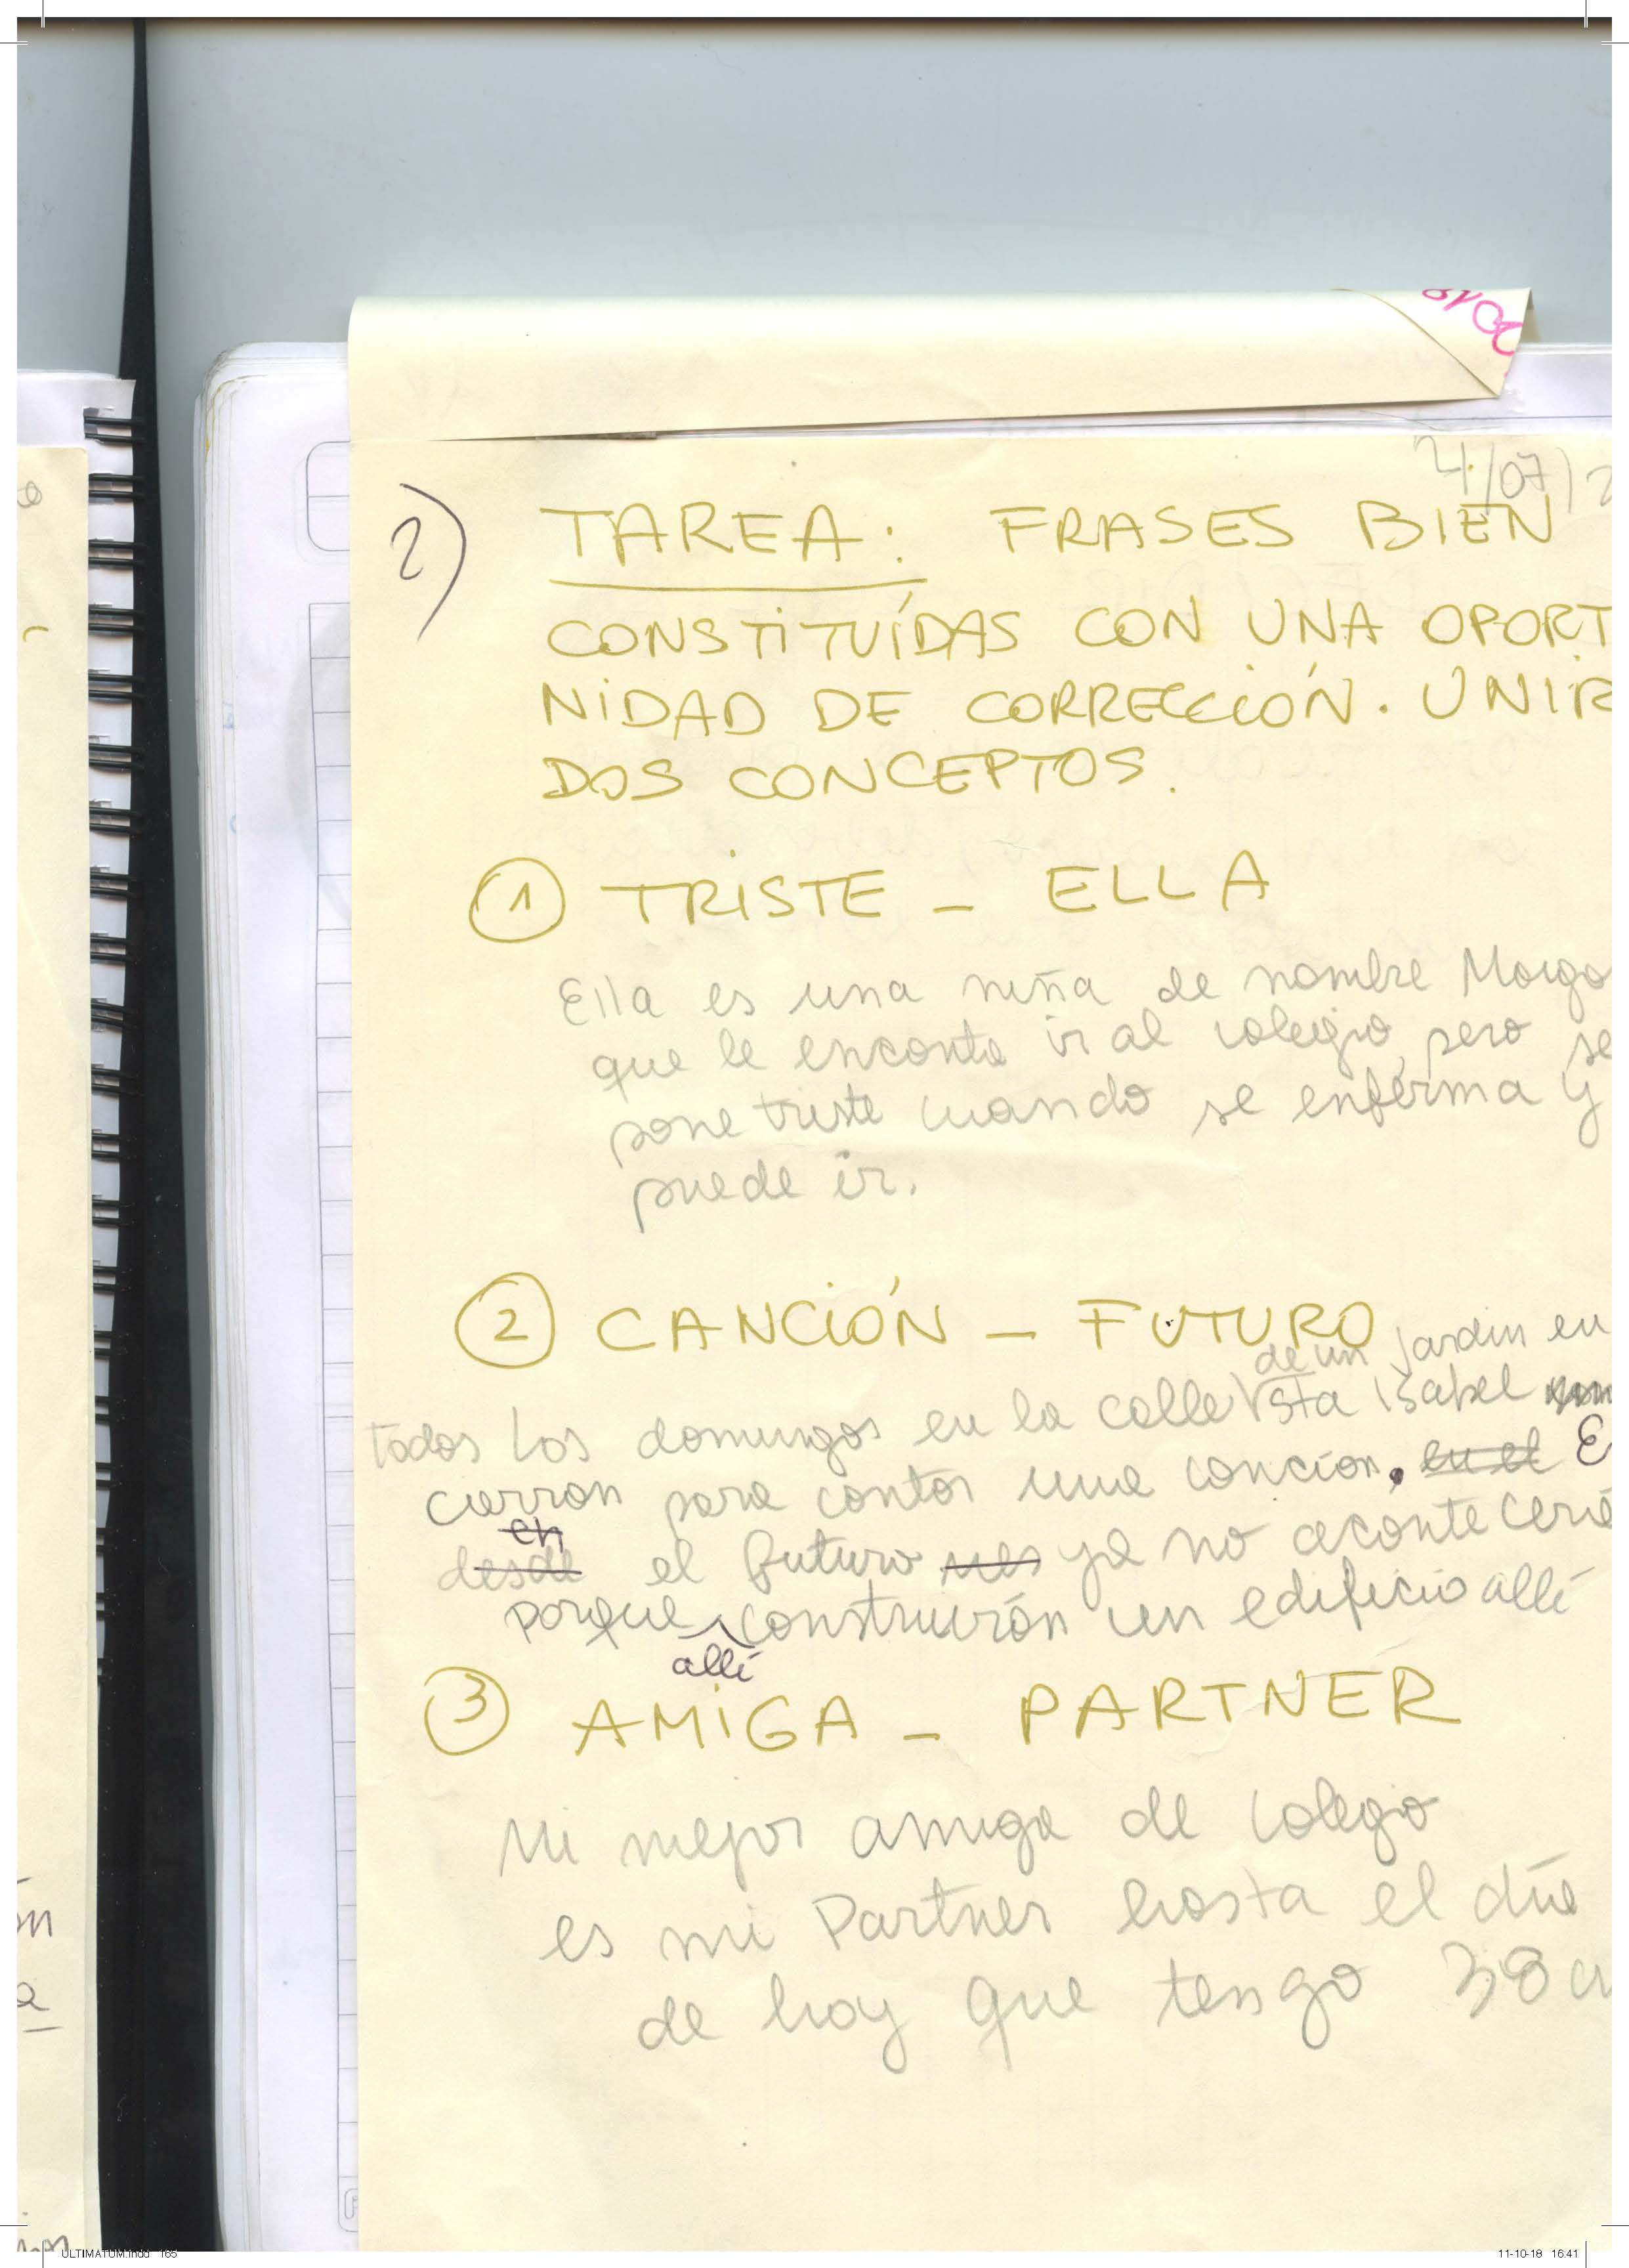 2) TAREA: FRASES BIEN
CONSTITUÍDAS CON UNA OPORT
NIDAD DE CORRECCIÓN. UNIR
DOS CONCEPTOS.
1 TRISTE - ELLA
Ella es una niña de nombre
que le enconta ir al colegio, pero se
pone triste cuando se enferma y
puede ir.
2 CANCIÓN - FUTURO
de un jardin en
todos los domingos en la calle Sta Isabel
para contar una cancion. en el E
en
desde el futuro ya no
porque construirán un edificio allí
allí
3 AMIGA - PARTNER
Mi mejor amiga de colegio
es mi Partner hasta el día
de hoy que tengo 38
ULTIMATUM.indd 165
11-10-18 16:41